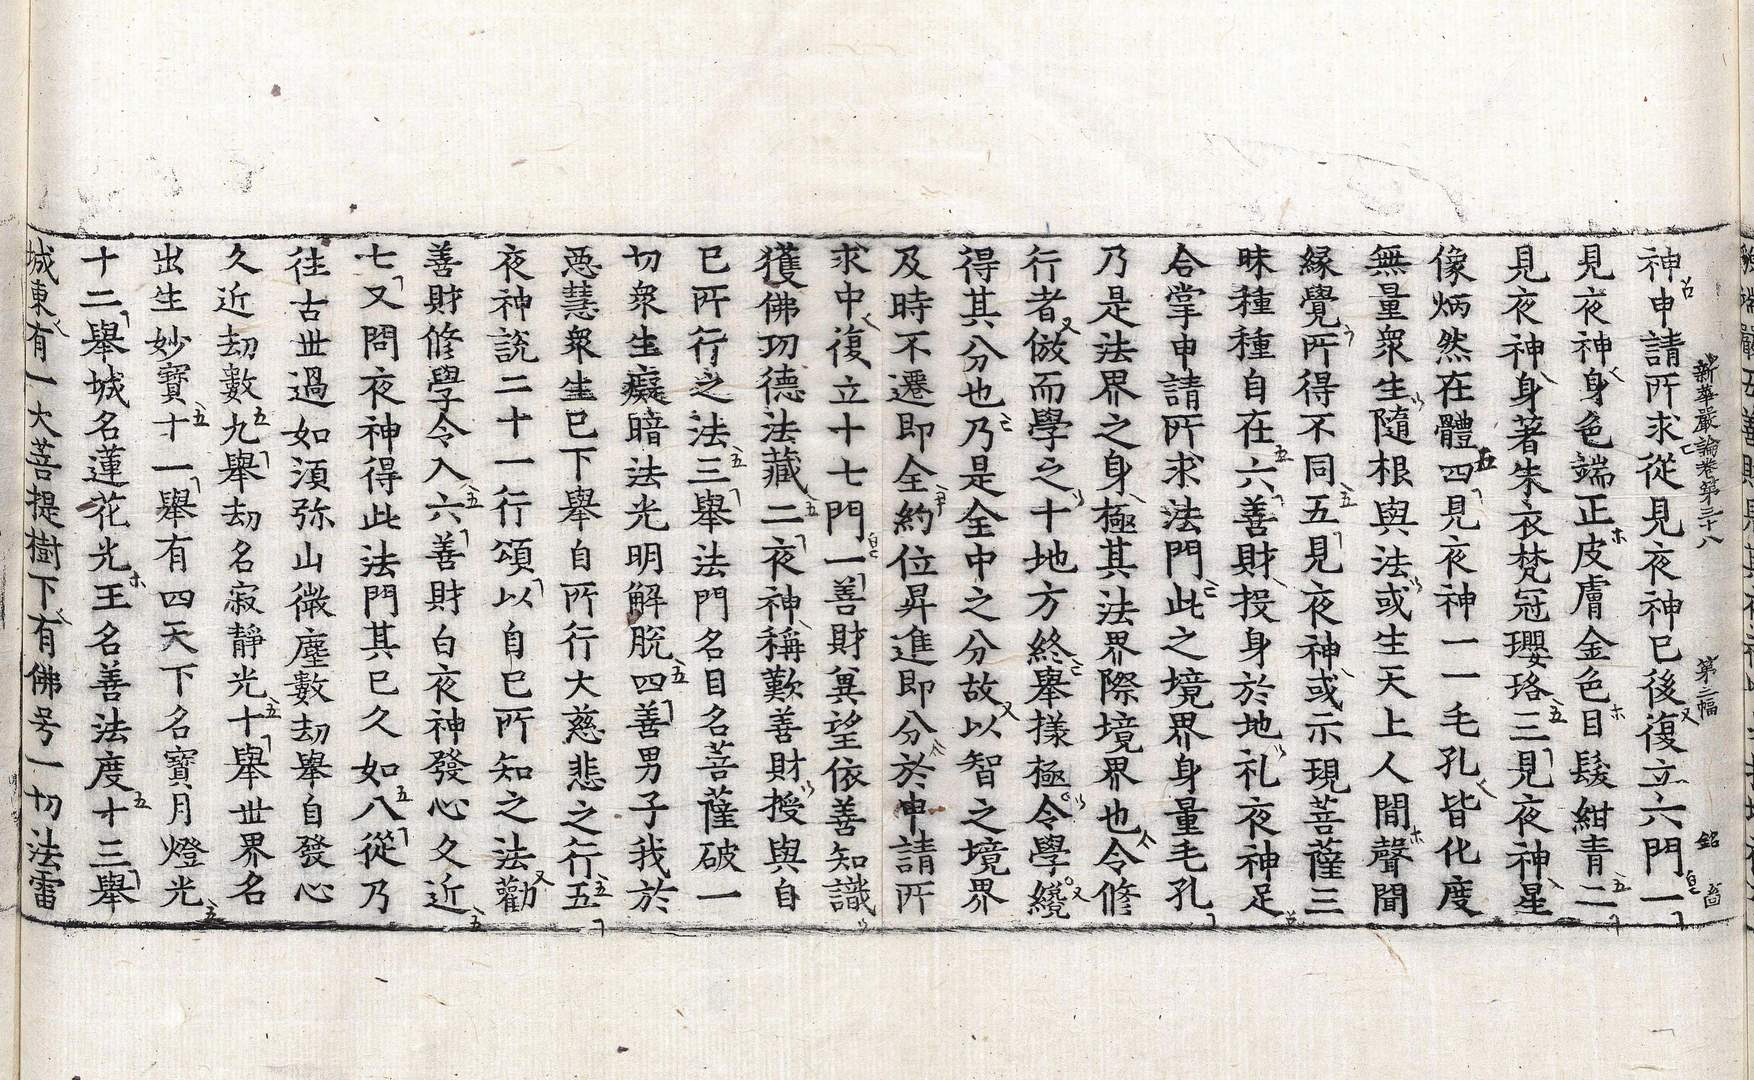 新華嚴論卷第三十八　第三幅　銘
神申請所求從見夜神已後復立六門一
見夜神身色端正皮膚金色目髮紺青二
見夜神身著朱衣梵冠瓔珞三見夜神星
像炳然在體四見夜神一一毛孔皆化度
無量衆生隨根與法或生天上人間聲聞
縁覺所得不同五見夜神或示現菩薩三
昧種種自在六善財投身於地礼夜神足
合掌申請所求法門此之境界身量毛孔
乃是法界之身極其法界際境界也令修
行者倣而學之十地方終舉樣極令學纔
得其分也乃是全中之分故以智之境界
及時不遷即全約位昇進即分於申請所
求中復立十七門一善財兾望依善知識
獲佛功德法藏二夜神稱歎善財授與自
已所行之法三舉法門名目名菩薩破一
切衆生癡暗法光明解脫四善男子我於
惡慧衆生已下舉自所行大慈悲之行五
夜神說二十一行頌以自已所知之法勸
善財修學令入六善財白夜神發心久近
七又問夜神得此法門其已久如八從乃
往古世過如湏弥山微塵數劫舉自發心
久近劫數九舉劫名寂靜光十舉世界名
出生妙寶十一舉有四天下名寶月燈光
十二舉城名蓮花光王名善法度十三舉
城東有一大菩提樹下有佛号一切法雷